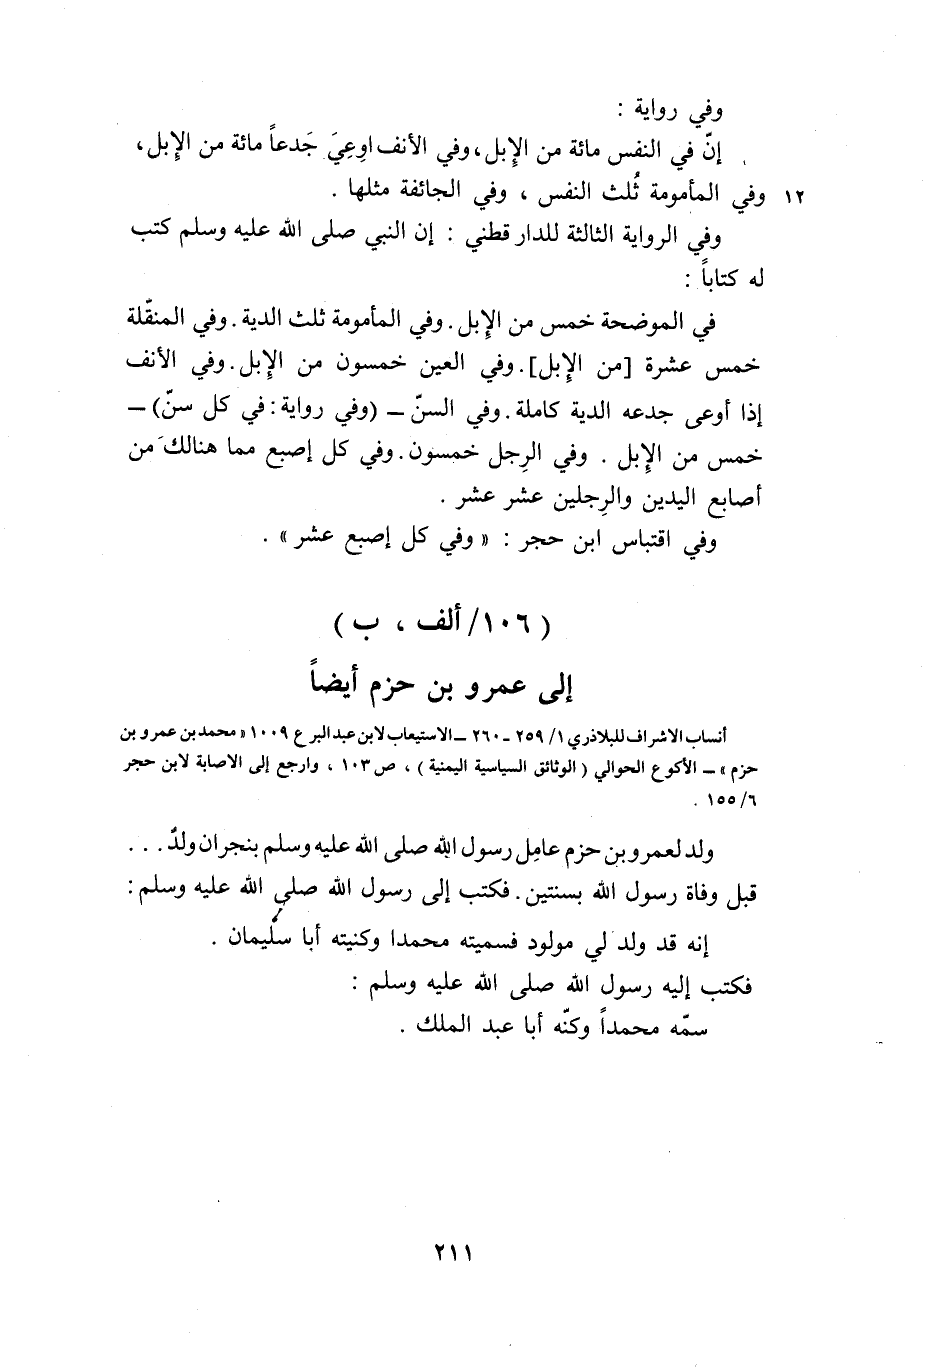 وفي رواية :
إنّ في النفس مائة من الإِبل، وفي الأنف اوعِيَ جَدعاً مائة من الإِبل،
١٢ وفي المأمومة ثُلث النفس ، وفي الجائفة مثلها .
وفي الرواية الثالثة للدار قطني : إن النبي صلى الله عليه وسلم كتب
له كتاباً :
في الموضحة خمس من الإِبل . وفي المأمومة ثلث الدية . وفي المنقّلة
خمس عشرة [من الإِبل] . وفي العين خمسون من الإِبل . وفي الأنف
إذا أوعى جدعه الدية كاملة . وفي السنّ – (وفي رواية : في كل سنّ) –
خمس من الإِبل . وفي الرِجل خمسون . وفي كل إصبع مما هنالك من
أصابع اليدين والرِجلين عشر عشر .
وفي اقتباس ابن حجر : « وفي كل إصبع عشر » .
( ١٠٦/ ألف ، ب )
إلى عمرو بن حزم أيضاً
أنساب الاشراف للبلاذري ١/ ٢٥٩ - ٢٦٠ – الاستيعاب لابن عبد البر ع ١٠٠٩ « محمد بن عمرو بن
حزم » – الأكوع الحوالي ( الوثائق السياسية اليمنية ) ، ص ١٠٣ ، وارجع إلى الاصابة لابن حجر
٦/ ١٥٥ .
ولد لعمرو بن حزم عامِل رسول الله صلى الله عليه وسلم بنجران ولدٌ . . .
قبل وفاة رسول الله بسنتين . فكتب إلى رسول الله صلى الله عليه وسلم :
إنه قد ولد لي مولود فسميته محمدا وكنيته أبا سُليمان .
فكتب إليه رسول الله صلى الله عليه وسلم :
سمّه محمداً وكنّه أبا عبد الملك .
٢١١